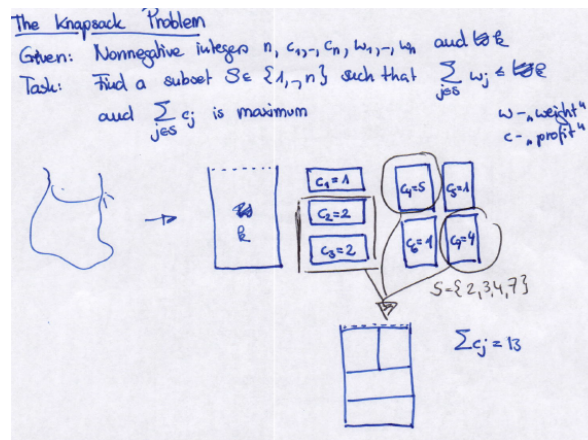 The Knapsack Problem
Given: Nonnegative integers n, c₁,-, cₙ, w₁,-, wₙ and k
Task: Find a subset S⊆{1,-,n} such that ∑j∈S wj ≤ k
and ∑j∈S cj is maximum
w – „weight“
c – „profit“
k
c₁=1
c₂=2
c₃=2
c₄=5
c₅=1
c₆=1
c₇=4
S={2,3,4,7}
∑cj=13